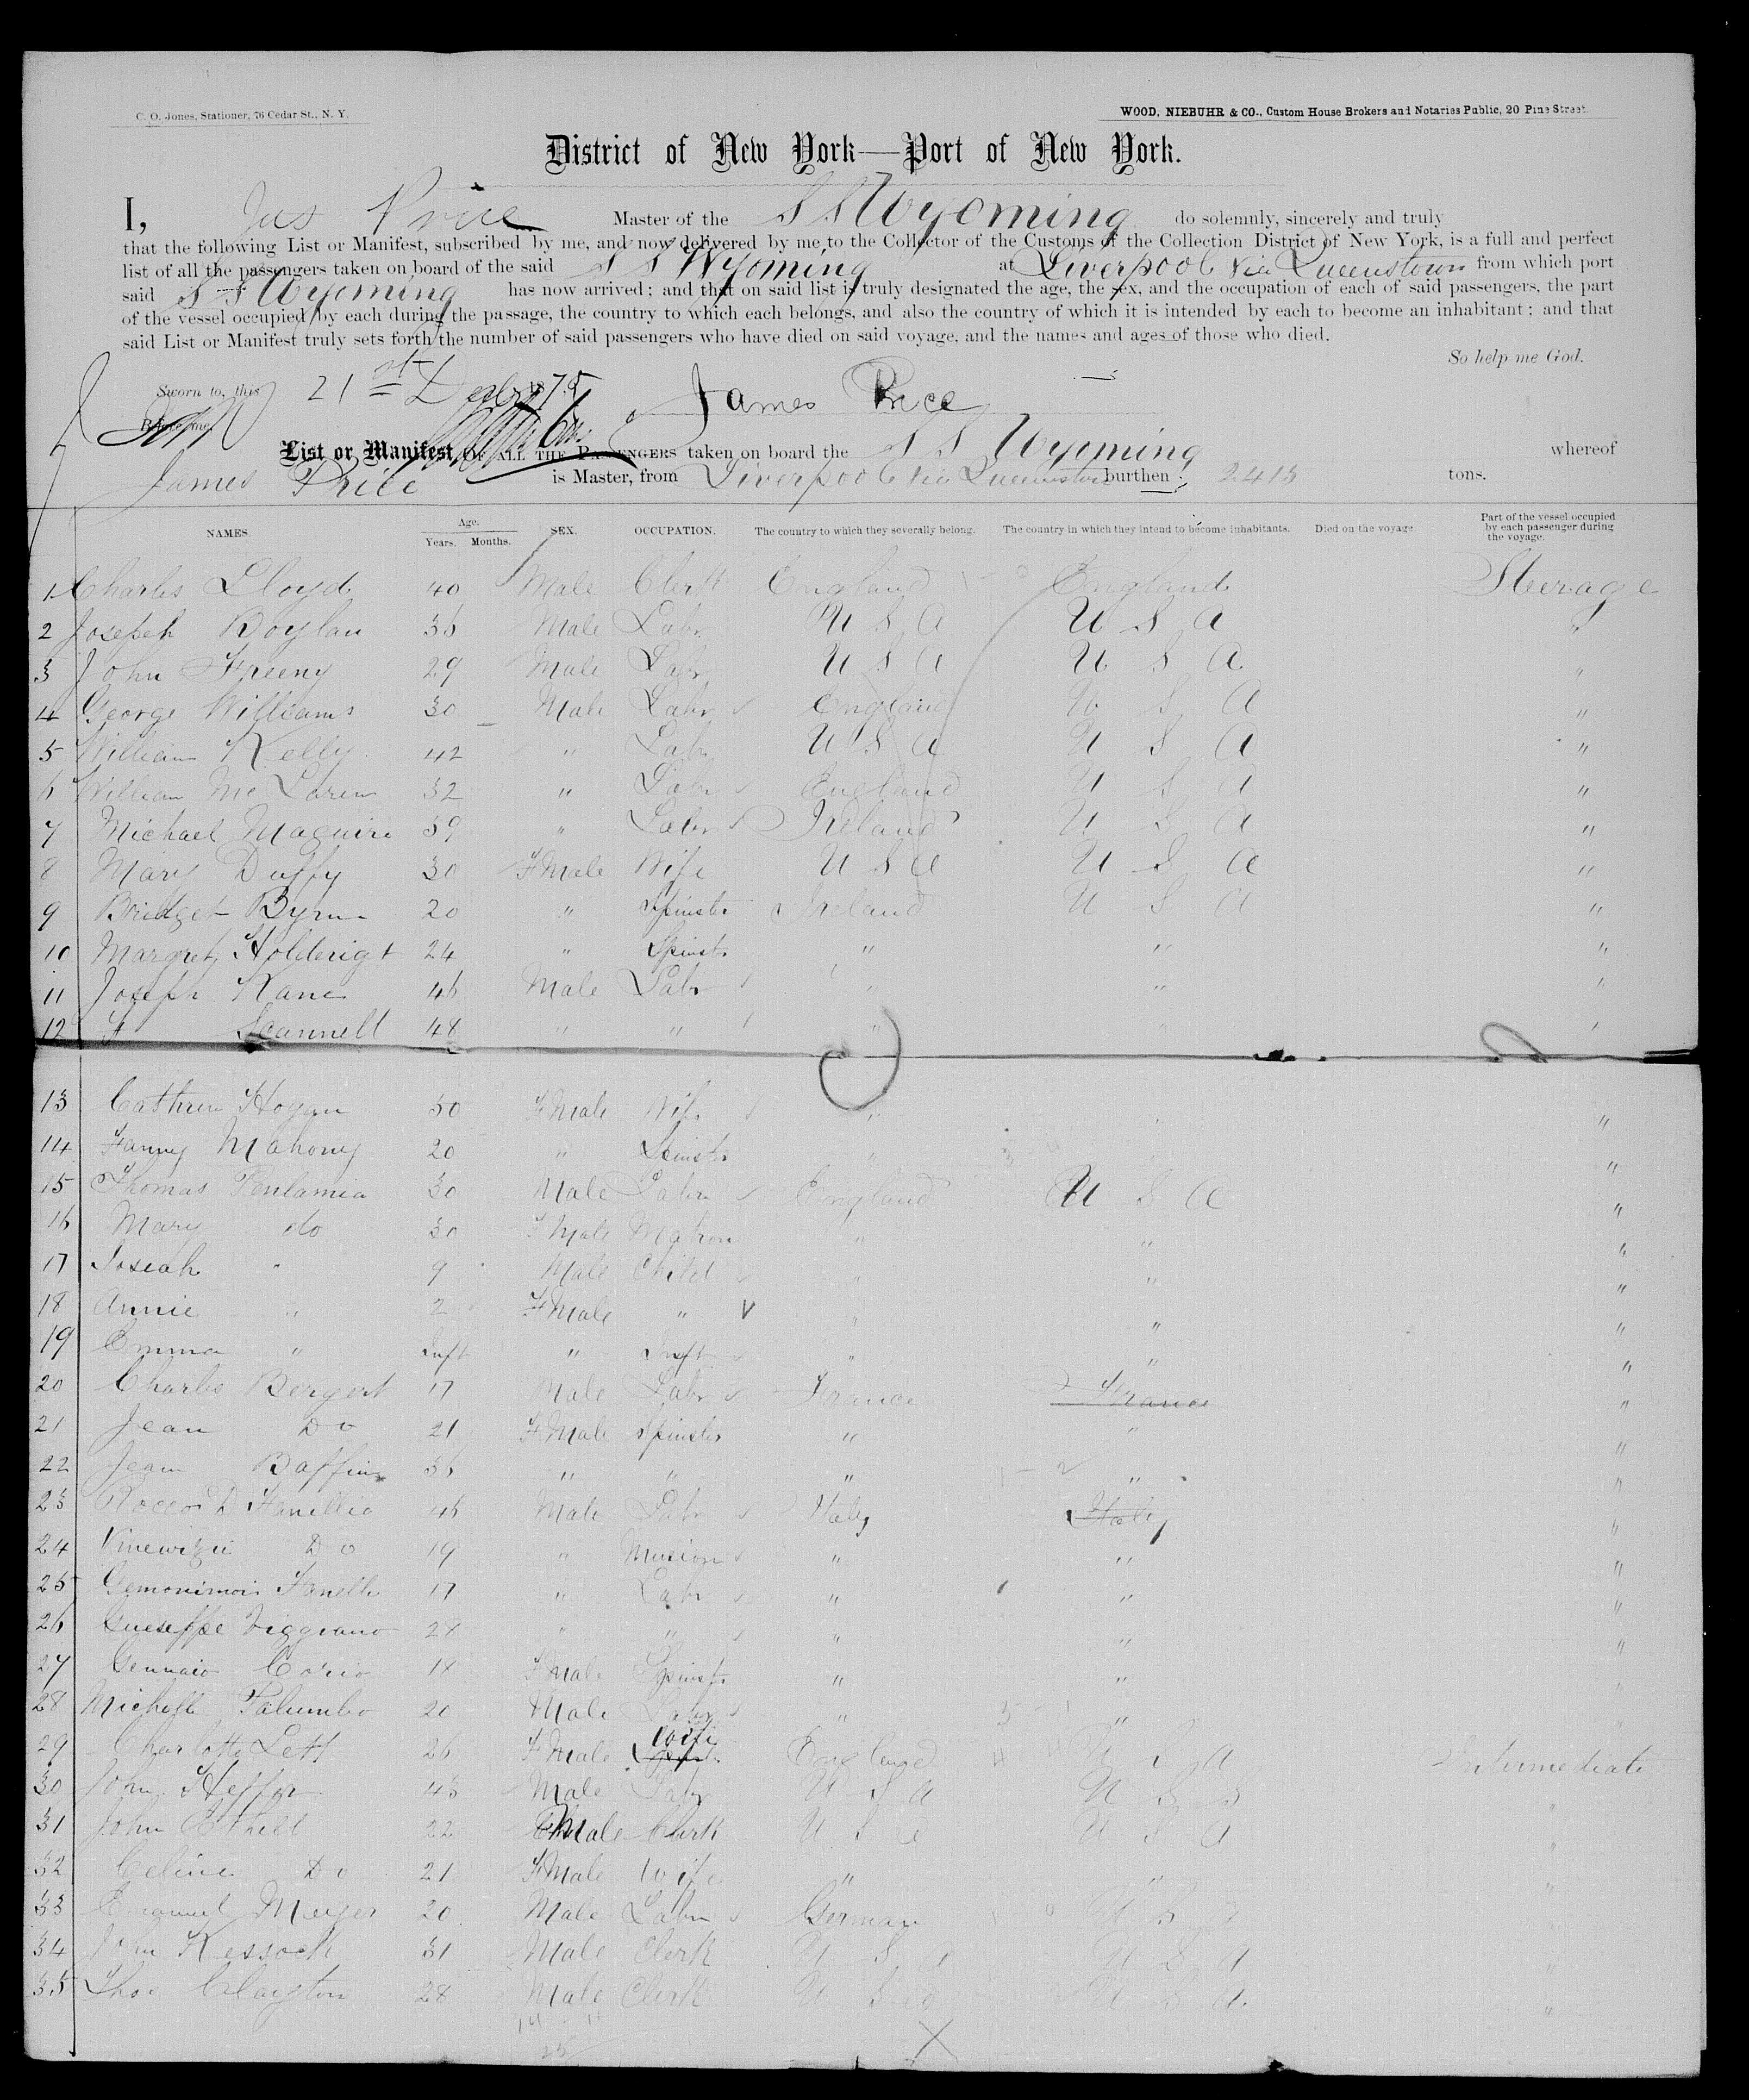 C. O. Jones, Stationer, 76 Cedar St., N. Y.
WOOD, NIEBUHR & CO., Custom House Brokers and Notaries Public, 20 Pine Street.
District of New York—Port of New York.
I, Jas Price Master of the S S Wyoming do solemnly, sincerely and truly
that the following List or Manifest, subscribed by me, and now delivered by me to the Collector of the Customs of the Collection District of New York, is a full and perfect
list of all the passengers taken on board of the said S S Wyoming at Liverpool via Queenstown from which port
said S S Wyoming has now arrived; and that on said list is truly designated the age, the sex, and the occupation of each of said passengers, the part
of the vessel occupied by each during the passage, the country to which each belongs, and also the country of which it is intended by each to become an inhabitant; and that
said List or Manifest truly sets forth the number of said passengers who have died on said voyage, and the names and ages of those who died.
So help me God.
Sworn to, this 21st 1875 James Price
Before me,
List or Manifest, OF ALL THE PASSENGERS taken on board the S S Wyoming whereof
James Price is Master, from Liverpool via Queenstown burthen 2415 tons.
NAMES. Age. Years. Months. SEX. OCCUPATION. The country to which they severally belong. The country in which they intend to become inhabitants. Died on the voyage. Part of the vessel occupied by each passenger during the voyage.
1 Charles Lloyd 40 Male Clerk England England Steerage
2 Joseph Boylan 36 Male Labr U S A U S A "
3 John Freeny 29 Male Labr U S A U S A "
4 George Williams 30 Male Labr England U S A "
5 William Kelly 42 " Labr U S A U S A "
6 William McLaren 32 " Labr England U S A "
7 Michael Maguire 39 " Labr Ireland U S A "
8 Mary Duffy 30 FMale Wife U S A U S A "
9 Bridget Byrne 20 " Spinster Ireland U S A "
10 Margret Holderigt 24 " Spinstr " " "
11 Joseph Kane 46 Male Labr " " "
12 Scannell 48 " " " "
13 Cathren Hogan 50 FMale Wife " "
14 Fanny Mahony 20 " Spinstr " "
15 Thomas Penlamia 30 Male Labr England U S A "
16 Mary do 30 FMale Matron " " "
17 Josiah " 9 Male Child " " "
18 Annie " 2 FMale " " " "
19 Emma " Inft " Inft " " "
20 Charles Bergert 17 Male Labr France France "
21 Jean Do 21 FMale Spinster " " "
22 Jean Baffin 36 " " " " "
23 Rocco 46 Male Labr Italy Italy "
24 Do 19 " Musicn " " "
25 Fanelli 17 " Labr " " "
26 Gueseppe Viggiano 28 " " " " "
27 Gennaio Corio 18 FMale Spinstr " "
28 Michelle Palumbo 20 Male Labr " "
29 Charlotte Lett 26 FMale Wife England U S A Intermediate
30 John 45 Male Labr U S A U S S "
31 John 22 Male Clerk U S A U S A "
32 Celine Do 21 FMale Wife " " "
33 Emanuel Meyer 20 Male Labr German U S A
34 John Kessock 31 Male Clerk U S A U S A "
35 Thos Clayton 28 Male Clerk U S A U S A "